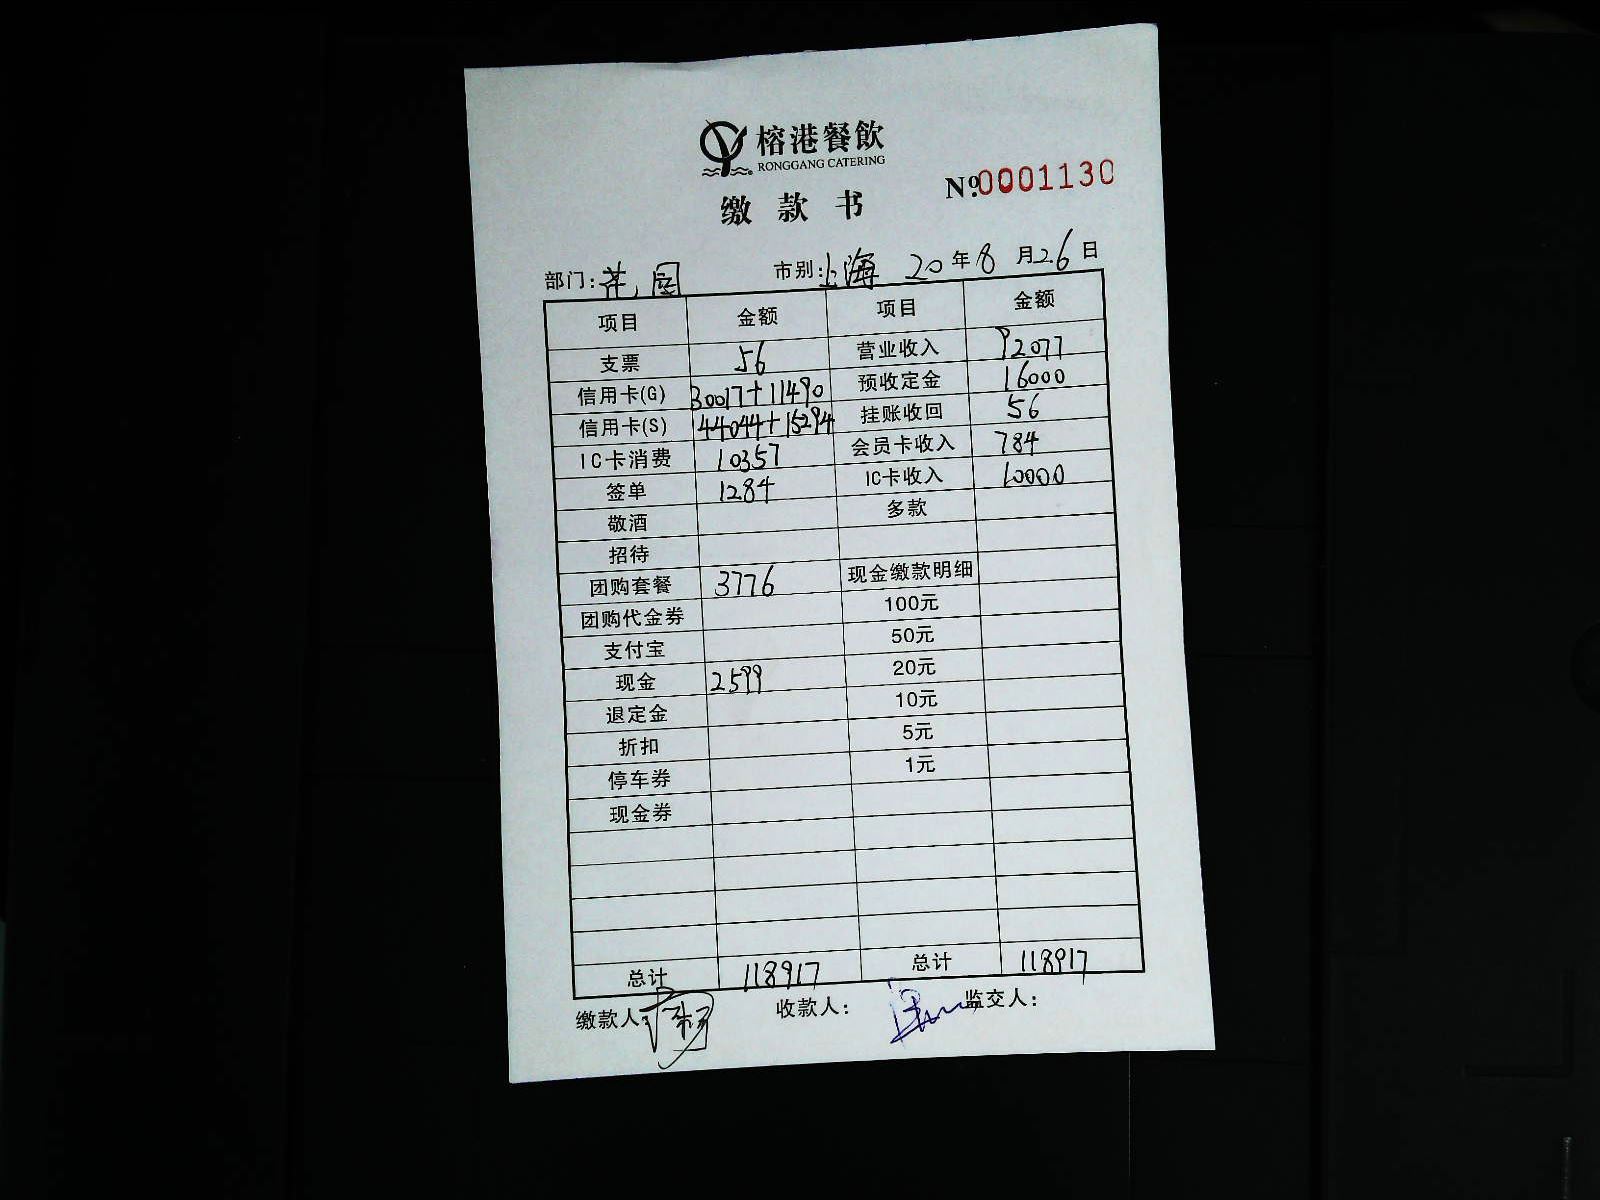 榕港餐飲
RONGGANG CATERING
缴款书 №0001130
部门:花园 市别:上海 20年8月26日
项目 金额 项目 金额
支票 56 营业收入 92077
信用卡(G) 30017+11490 预收定金 16000
信用卡(S) 44044+15294 挂账收回 56
IC卡消费 10357 会员卡收入 784
签单 1284 IC卡收入 10000
敬酒 多款
招待
团购套餐 3776 现金缴款明细
团购代金券 100元
支付宝 50元
现金 2599 20元
退定金 10元
折扣 5元
停车券 1元
现金券
总计 118917 总计 118917
缴款人: 收款人: 监交人: